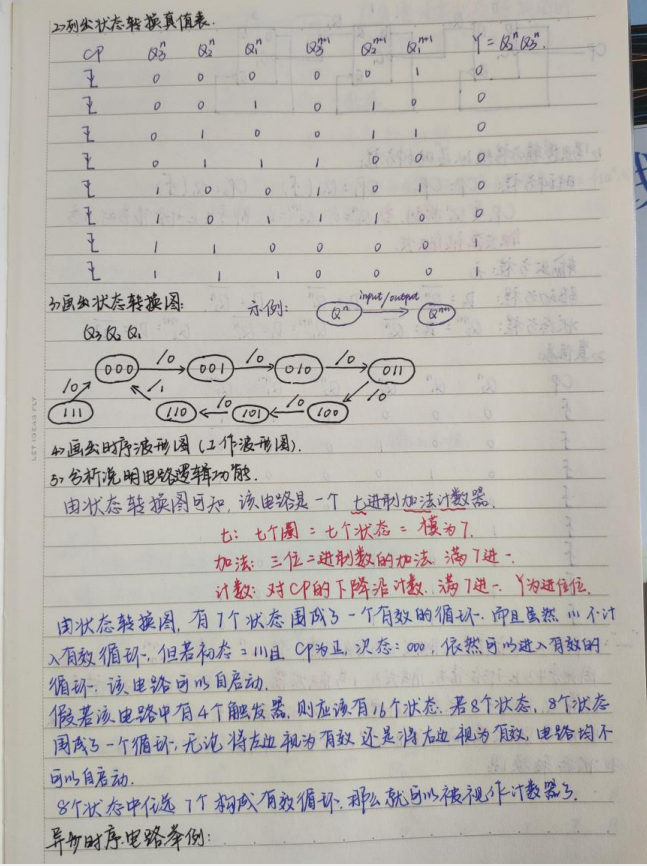 2>列出状态转换真值表.
CP Q₃ⁿ Q₂ⁿ Q₁ⁿ Q₃ⁿ⁺¹ Q₂ⁿ⁺¹ Q₁ⁿ⁺¹ Y=Q₃ⁿQ₂ⁿ.
0 0 0 0 0 1 0
0 0 1 0 1 0 0
0 1 0 0 1 1 0
0 1 1 1 0 0 0
1 0 0 1 0 1 0
1 0 1 1 1 0 0
1 1 0 0 0 0 1
1 1 1 0 0 0 1
3>画出状态转换图:
示例: Qⁿ input/output Qⁿ⁺¹
Q₃ Q₂ Q₁
000 /0 001 /0 010 /0 011
/0 /1 /0
111 110 /0 101 /0 100
4>画出时序波形图(工作波形图).
5>分析说明电路逻辑功能.
由状态转换图可知,该电路是一个七进制加法计数器.
七: 七个圈=七个状态=模为7.
加法: 三位二进制数的加法 满7进一.
计数: 对CP的下降沿计数. 满7进一. Y为进位位.
由状态转换图,有7个状态围成了一个有效的循环.而且虽然111不计
入有效循环,但若初态=111且CP为正,次态:000,依然可以进入有效的
循环.该电路可以自启动.
假若该电路中有4个触发器,则应该有16个状态.若8个状态,8个状态
围成了一个循环,无论将左边视为有效还是将右边视为有效,电路均不
可以自启动.
8个状态中任选7个构成有效循环.那么就可以被视作计数器了.
异步时序电路案例:
LET IDEAS FLY